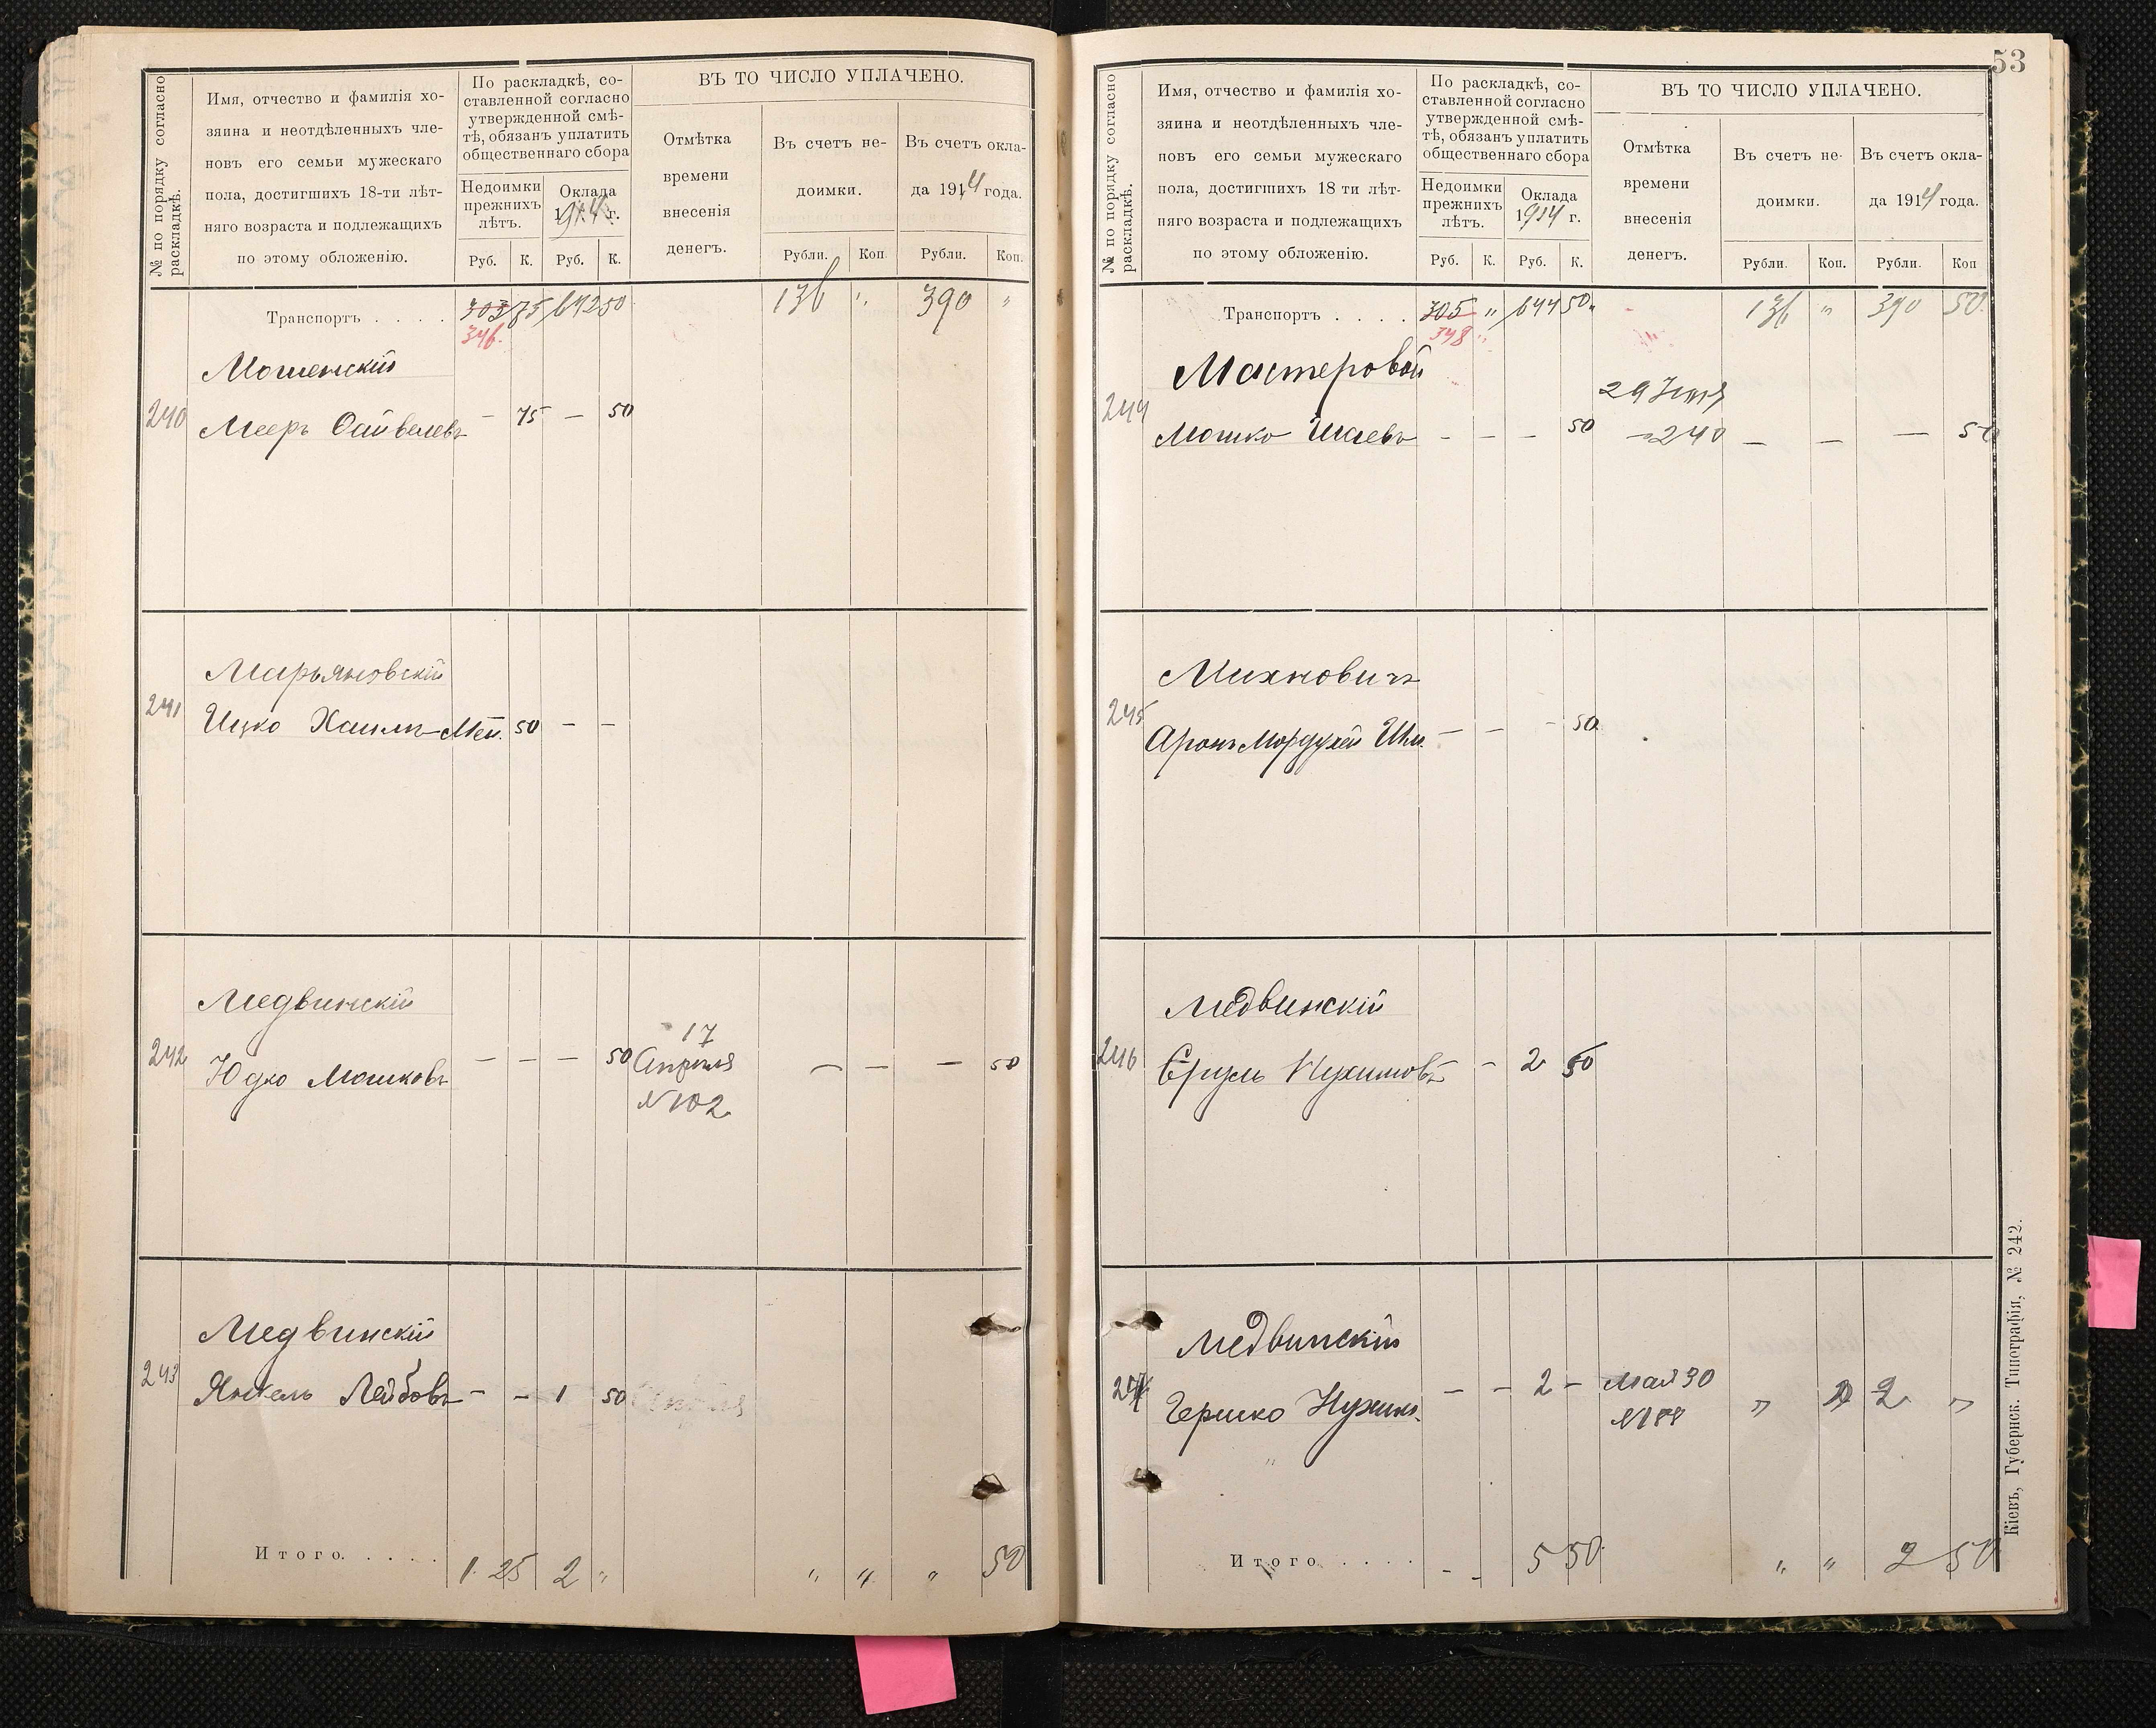 № по порядку согласно
раскладкѣ.
Имя, отчество и фамилія хо-
зяина и неотдѣленныхъ чле-
новъ его семьи мужескаго
пола, достигшихъ 18-ти лѣт-
няго возраста и подлежащихъ
по этому обложенію.
По раскладкѣ, со-
ставленной согласно
утвержденной смѣ-
тѣ, обязанъ уплатить
общественнаго сбора
Недоимки
прежнихъ
лѣтъ.
Оклада
1914 г.
Руб. К. Руб. К.
ВЪ ТО ЧИСЛО УПЛАЧЕНО.
Отмѣтка
времени
внесенія
денегъ.
Въ счетъ не-
доимки.
Рубли. Коп.
Въ счетъ окла-
да 1914 года.
Рубли. Коп.
Транспортъ . . . . 303 75 642 50 136 " 390 "
346.
Мошенскій
240 Мееръ Файвелевъ - 75 - 50
Марьяновскій
241 Ицко Хаимъ-Мен. 50 - -
Медвинскій
242 Юдко Мошковъ - - - 50 17 Апрѣля №102 - - - 50
Медвинскій
243 Янкель Лейбовъ - - 1 50
Итого. . . . . 1. 25 2 " " " " 50
53
№ по порядку согласно
раскладкѣ.
Имя, отчество и фамилія хо-
зяина и неотдѣленныхъ чле-
новъ его семьи мужескаго
пола, достигшихъ 18 ти лѣт-
няго возраста и подлежащихъ
по этому обложенію.
По раскладкѣ, со-
ставленной согласно
утвержденной смѣ-
тѣ, обязанъ уплатить
общественнаго сбора
Недоимки
прежнихъ
лѣтъ.
Оклада
1914 г.
Руб. К. Руб. К.
ВЪ ТО ЧИСЛО УПЛАЧЕНО.
Отмѣтка
времени
внесенія
денегъ.
Въ счетъ не-
доимки.
Рубли. Коп.
Въ счетъ окла-
да 1914 года.
Рубли. Коп
Транспортъ . . . . 305 " 644 50 136 " 390 50.
348 "
Мастеровой
244 Мошко Шаевъ - - - 50 240 - - - 50
Михновичъ
245 Аронъ Мордухай - - - 50
Медвинскій
246 Сруль Нухимовъ - 2 50
Медвинскій
247 Гершко Нухимъ. - - 2 - Мая 30 " 2 "
Итого . . . . - - 5 50. " " 2 50
Кіевъ, Губернск. Типографія, № 242.